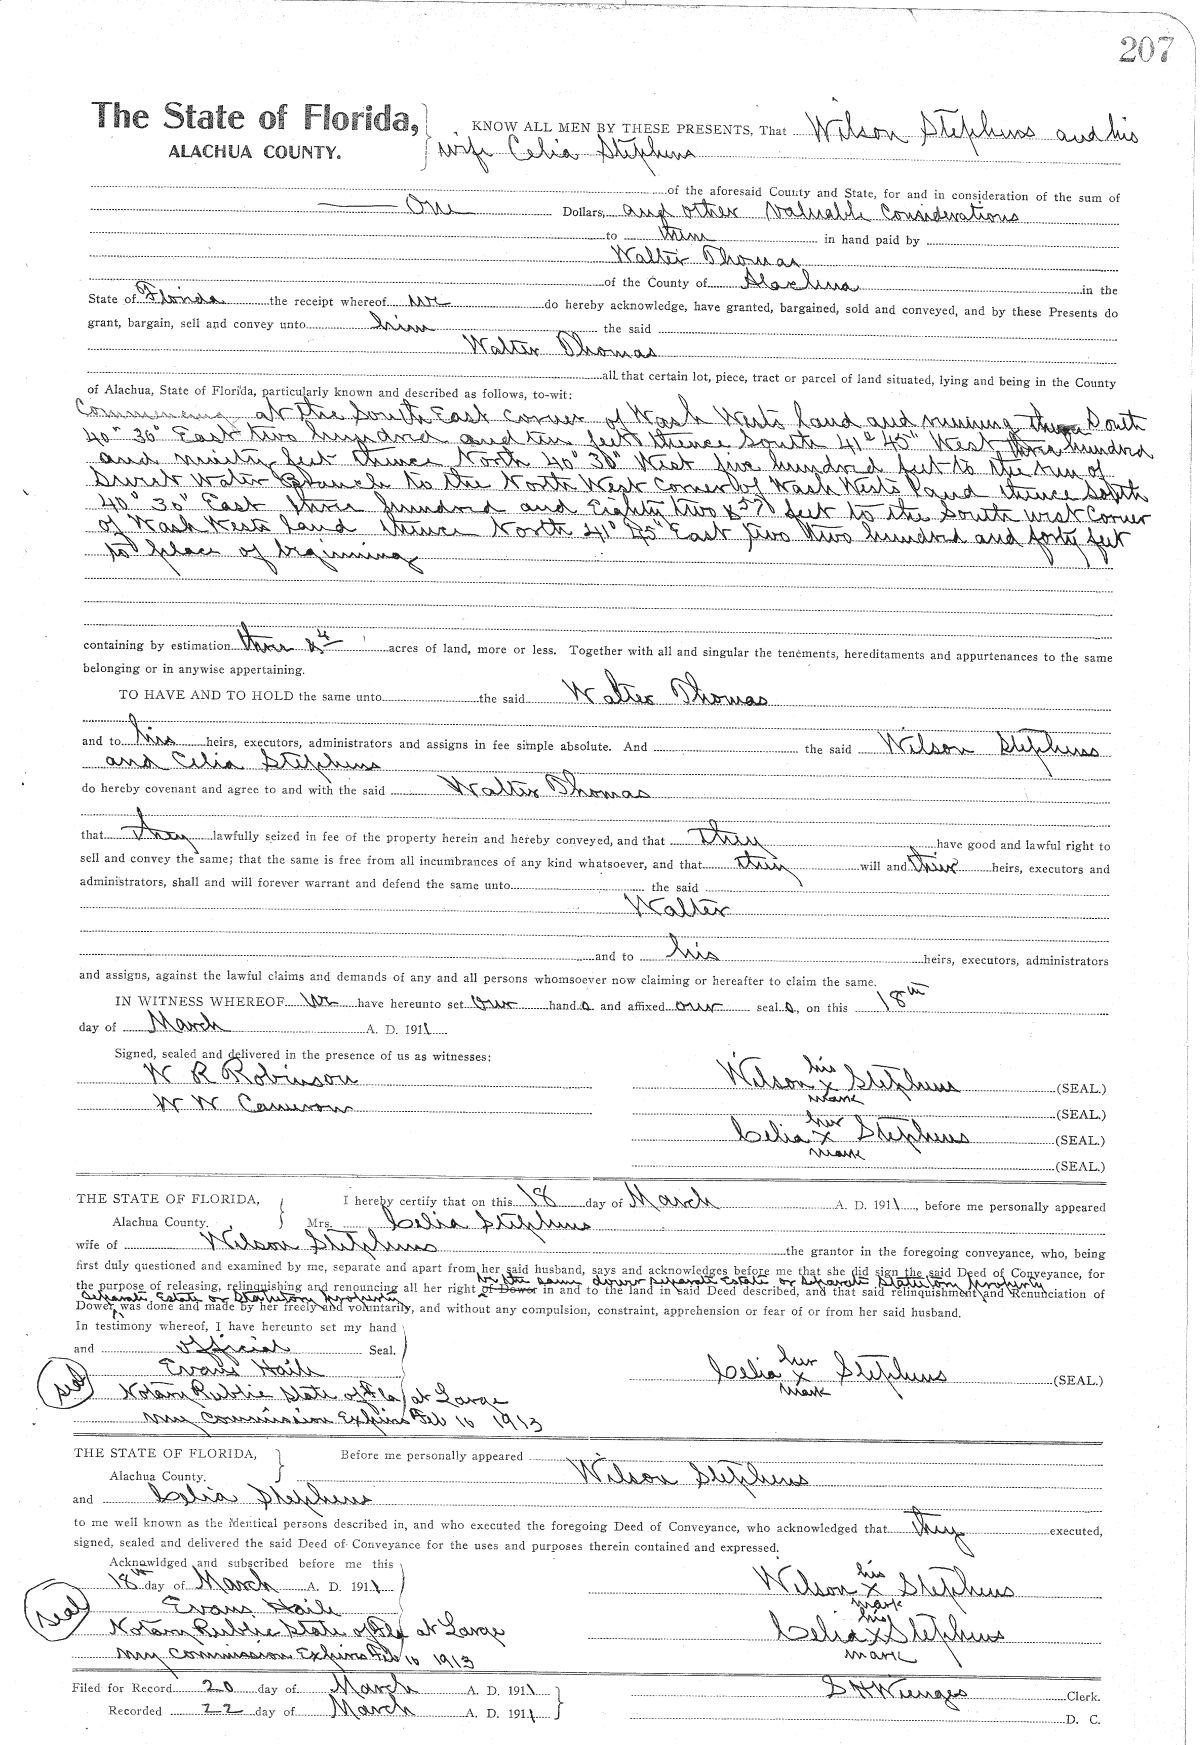 207
The State of Florida,
ALACHUA COUNTY.
KNOW ALL MEN BY THESE PRESENTS, That Wilson Stephens and his
wife Celia Stephens
of the aforesaid County and State, for and in consideration of the sum of
One Dollars, and other valuable considerations
to them in hand paid by
Walter Thomas
of the County of Alachua in the
State of Florida the receipt whereof we do hereby acknowledge, have granted, bargained, sold and conveyed, and by these Presents do
grant, bargain, sell and convey unto him the said
Walter Thomas
all that certain lot, piece, tract or parcel of land situated, lying and being in the County
of Alachua, State of Florida, particularly known and described as follows, to-wit:
Commencing at the South East corner of Wash Wests land and running thence South
40° 30" East two hundred and ten feet thence South 41° 45" West three hundred
and ninety feet thence North 40° 30" West five hundred feet to the run of
Sweet Water Branch to the North West corner of Wash Wests Land thence South
40° 30" East three hundred and Eighty two & feet to the South west Corner
of Wash Wests land thence North 41° 45" East two hundred and forty feet
to place of beginning
containing by estimation three & 4 acres of land, more or less. Together with all and singular the tenements, hereditaments and appurtenances to the same
belonging or in anywise appertaining.
TO HAVE AND TO HOLD the same unto the said Walter Thomas
and to his heirs, executors, administrators and assigns in fee simple absolute. And the said Wilson Stephens
and Celia Stephens
do hereby covenant and agree to and with the said Walter Thomas
that they lawfully seized in fee of the property herein and hereby conveyed, and that they have good and lawful right to
sell and convey the same; that the same is free from all incumbrances of any kind whatsoever, and that they will and their heirs, executors and
administrators, shall and will forever warrant and defend the same unto the said
Walter
and to his heirs, executors, administrators
and assigns, against the lawful claims and demands of any and all persons whomsoever now claiming or hereafter to claim the same.
IN WITNESS WHEREOF We have hereunto set our hand s and affixed our seal s, on this 18th
day of March A. D. 1911
Signed, sealed and delivered in the presence of us as witnesses:
W R Robinson
W W Cameron
his
Wilson x Stephens (SEAL.)
mark
(SEAL.)
her
Celia x Stephens (SEAL.)
mark
(SEAL.)
THE STATE OF FLORIDA,
Alachua County.
I hereby certify that on this 18 day of March A. D. 1911, before me personally appeared
Mrs. Celia Stephens
wife of Wilson Stephens the grantor in the foregoing conveyance, who, being
first duly questioned and examined by me, separate and apart from her said husband, says and acknowledges before me that she did sign the said Deed of Conveyance, for
the same dower separate Estate or Separate Statutory property
the purpose of releasing, relinquishing and renouncing all her right of Dower in and to the land in said Deed described, and that said relinquishment and Renunciation of
Separate Estate or Statutory property
Dower was done and made by her freely and voluntarily, and without any compulsion, constraint, apprehension or fear of or from her said husband.
In testimony whereof, I have hereunto set my hand
and official Seal.
Evans Haile
seal
Notary Public State of Fla at Large
my commission Expires Feb 10 1913
her
Celia x Stephens (SEAL.)
mark
THE STATE OF FLORIDA,
Alachua County.
Before me personally appeared
Wilson Stephens
and Celia Stephens
to me well known as the identical persons described in, and who executed the foregoing Deed of Conveyance, who acknowledged that they executed,
signed, sealed and delivered the said Deed of Conveyance for the uses and purposes therein contained and expressed.
Acknowldged and subscribed before me this
18th day of March A. D. 1911
Evans Haile
seal
Notary Public State of Fla at Large
my commission Expires Feb 10 1913
his
Wilson x Stephens
mark
his
Celia x Stephens
mark
Filed for Record 20 day of March A. D. 1911
Recorded 22 day of March A. D. 1911
S H Wienges Clerk.
D. C.